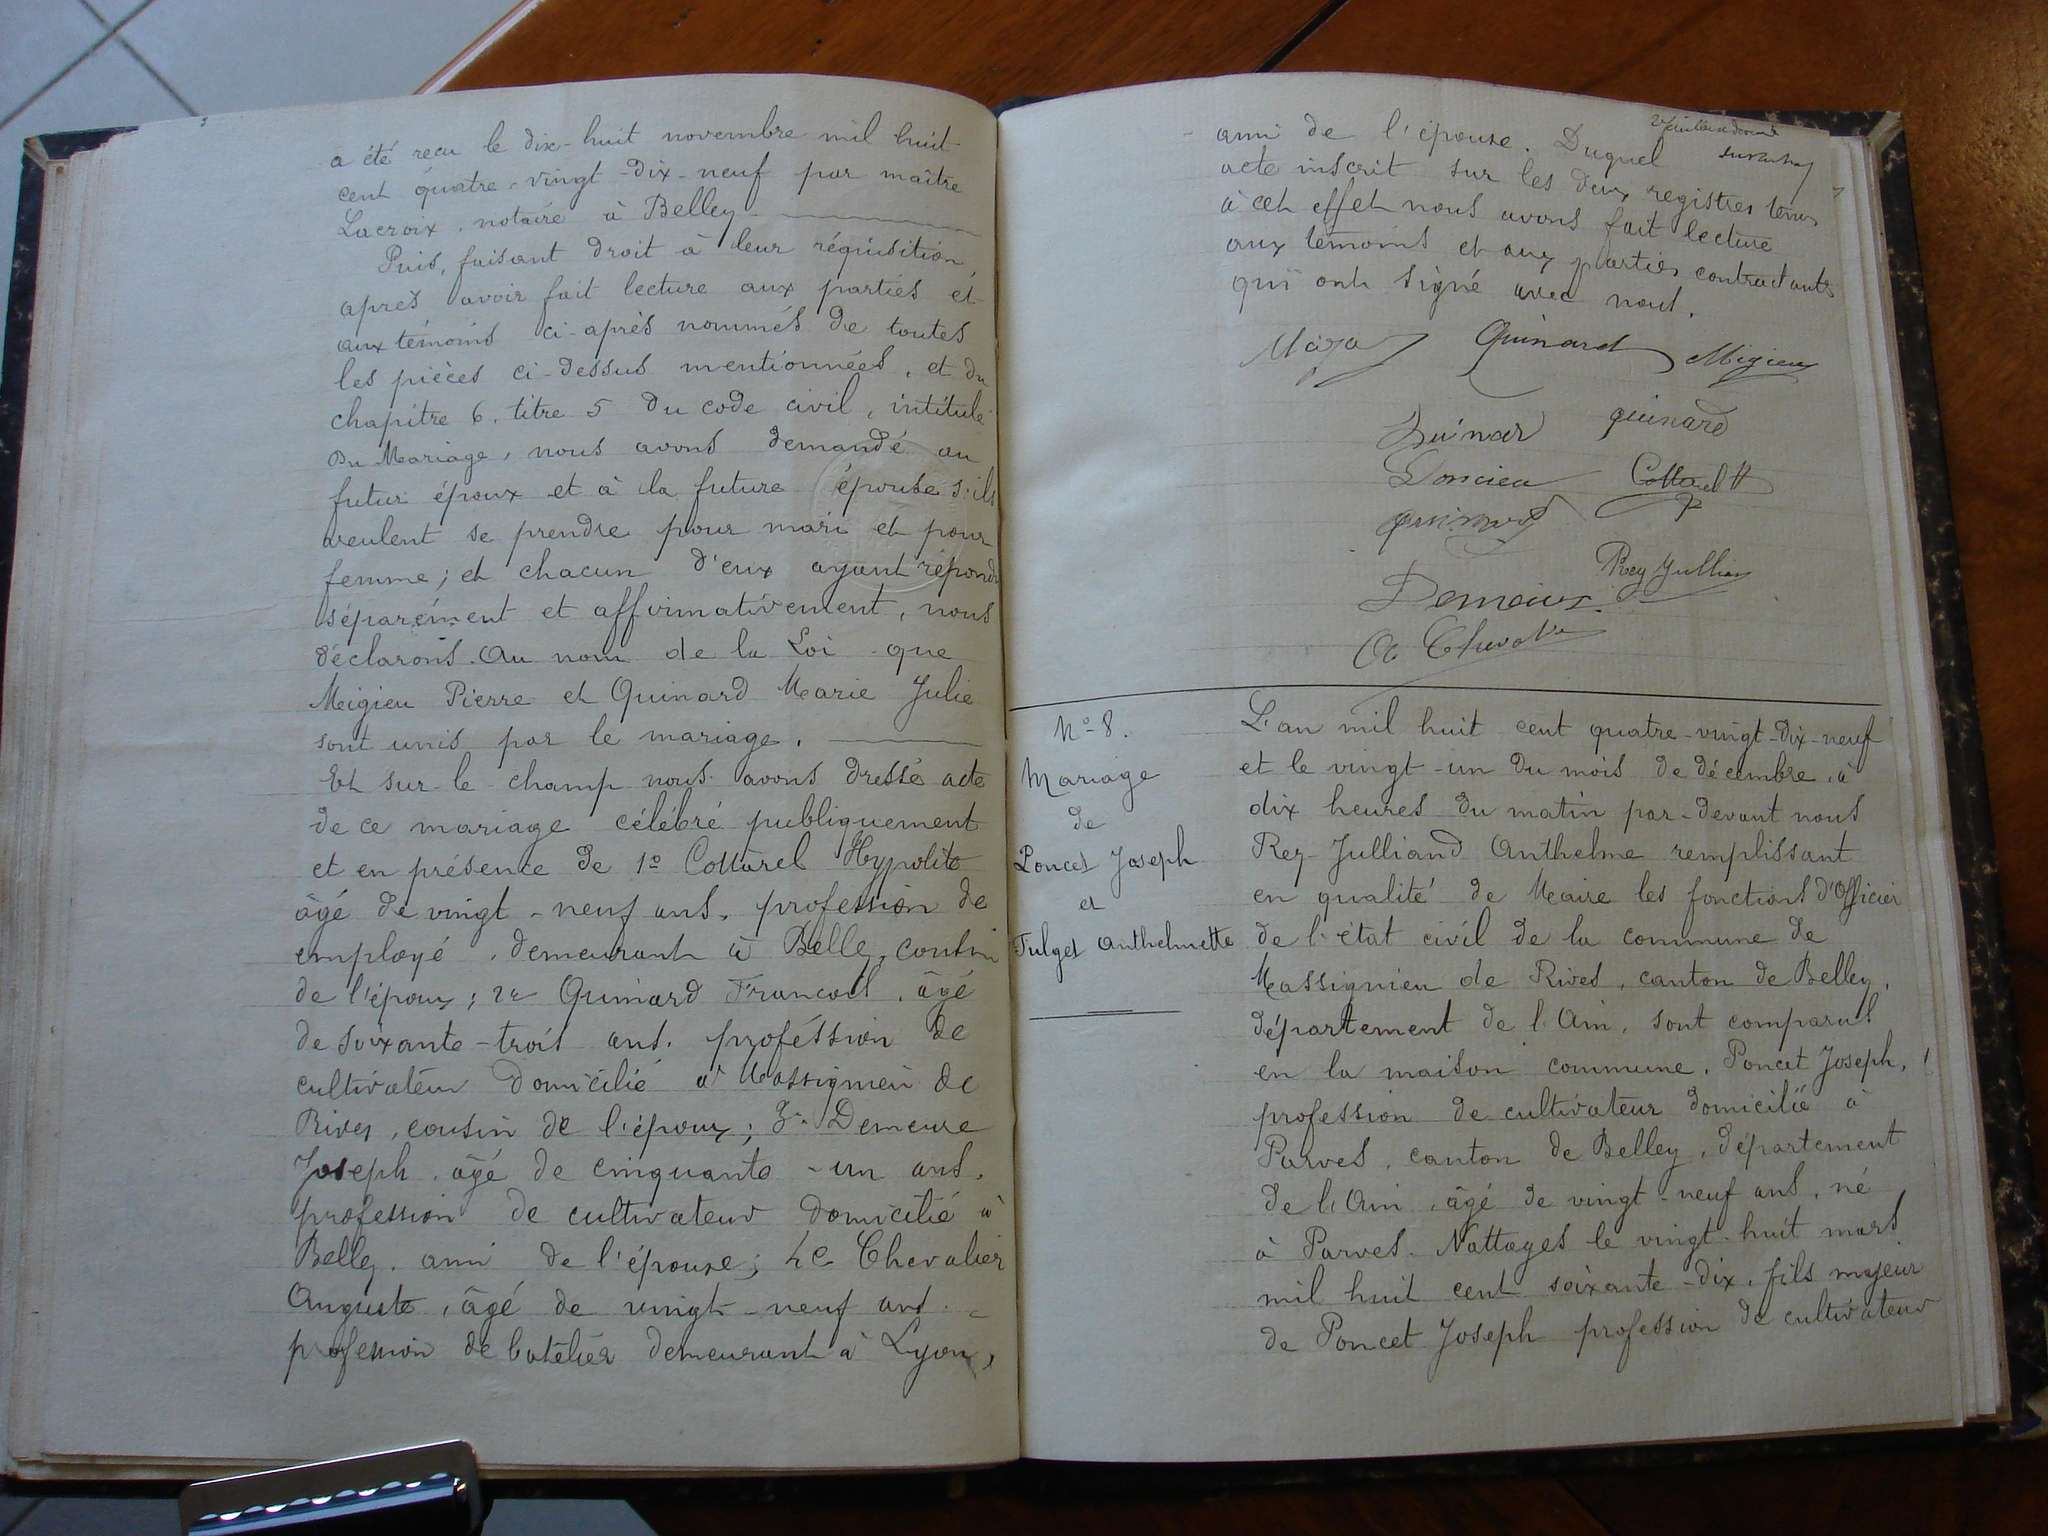 a été reçu le dix-huit novembre mil huit
cent quatre-vingt-dix-neuf par maître
Lacroix, notaire à Belley.
Puis, faisant droit à leur réquisition,
après avoir fait lecture aux parties et
aux témoins ci-après nommés de toutes
les pièces ci-dessus mentionnées, et du
chapitre 6, titre 5 du code civil, intitulé
Du Mariage, nous avons demandé au
futur époux et à la future épouse s'ils
veulent se prendre pour mari et pour
femme; et chacun d'eux ayant répondu
séparément et affirmativement, nous
déclarons. Au nom de la Loi que
Migieu Pierre et Quinard Marie Julie
sont unis par le mariage.
Et sur-le-champ nous avons dressé acte
de ce mariage célébré publiquement
et en présence de 1o Cottarel Hypolite
âgé de vingt-neuf ans, profession de
employé, demeurant à Belley, cousin
de l'époux; 2e Quinard Francois, âgé
de soixante-trois ans, profession de
cultivateur domicilié à Massignieu de
Rives, cousin de l'époux; 3e Demeure
Joseph, âgé de cinquante-un ans,
profession de cultivateur domicilié à
Belley, ami de l'épouse; 4e Chevalier
Auguste, âgé de vingt-neuf ans
profession de batelier demeurant à Lyon,
ami de l'épouse. Duquel
acte inscrit sur les deux registres tenus
à cet effet nous avons fait lecture
aux témoins et aux parties contractants
qui ont signé avec nous.
Quinard Migieu
quinard
Cottarel H
Rey Julliand
N° 8.
Mariage
de
Poncet Joseph
et
Tulget Anthelmette
L'an mil huit cent quatre-vingt-dix-neuf
et le vingt-un du mois de décembre, à
dix heures du matin par-devant nous
Rey-Julliand Anthelme remplissant
en qualité de Maire les fonctions d'Officier
de l'état civil de la commune de
Massignieu de Rives, canton de Belley,
département de l'Ain, sont comparus
en la maison commune, Poncet Joseph,
profession de cultivateur domicilié à
Parves, canton de Belley, département
de l'Ain, âgé de vingt-neuf ans, né
à Parves-Nattages le vingt-huit mars
mil huit cent soixante-dix, fils majeur
de Poncet Joseph profession de cultivateur